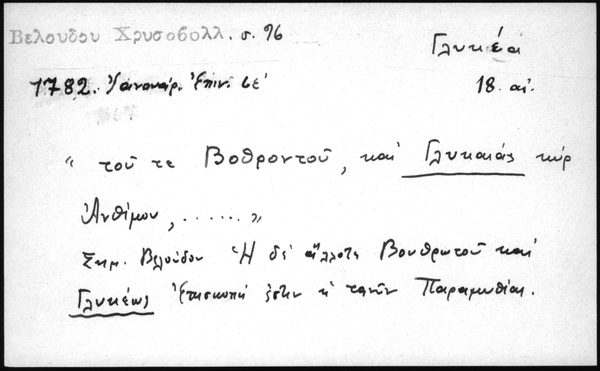 Βελουδου Χρυσοβολλ. σ. 96
Γλυκέαι
1782. Ἰανουάρ. Ἐπιν. ιε΄
18. αἰ.
" τοῦ τε Βοθροντοῦ, καὶ Γλυκαιάς κύρ
Ἀνθίμου, ...... "
Σημ. Βελούδου Ἡ δὲ ἄλλοτε Βουθρωτοῦ καὶ
Γλυκέως Ἐπισκοπή ἐστιν ἡ τανῦν Παραμυθίας.